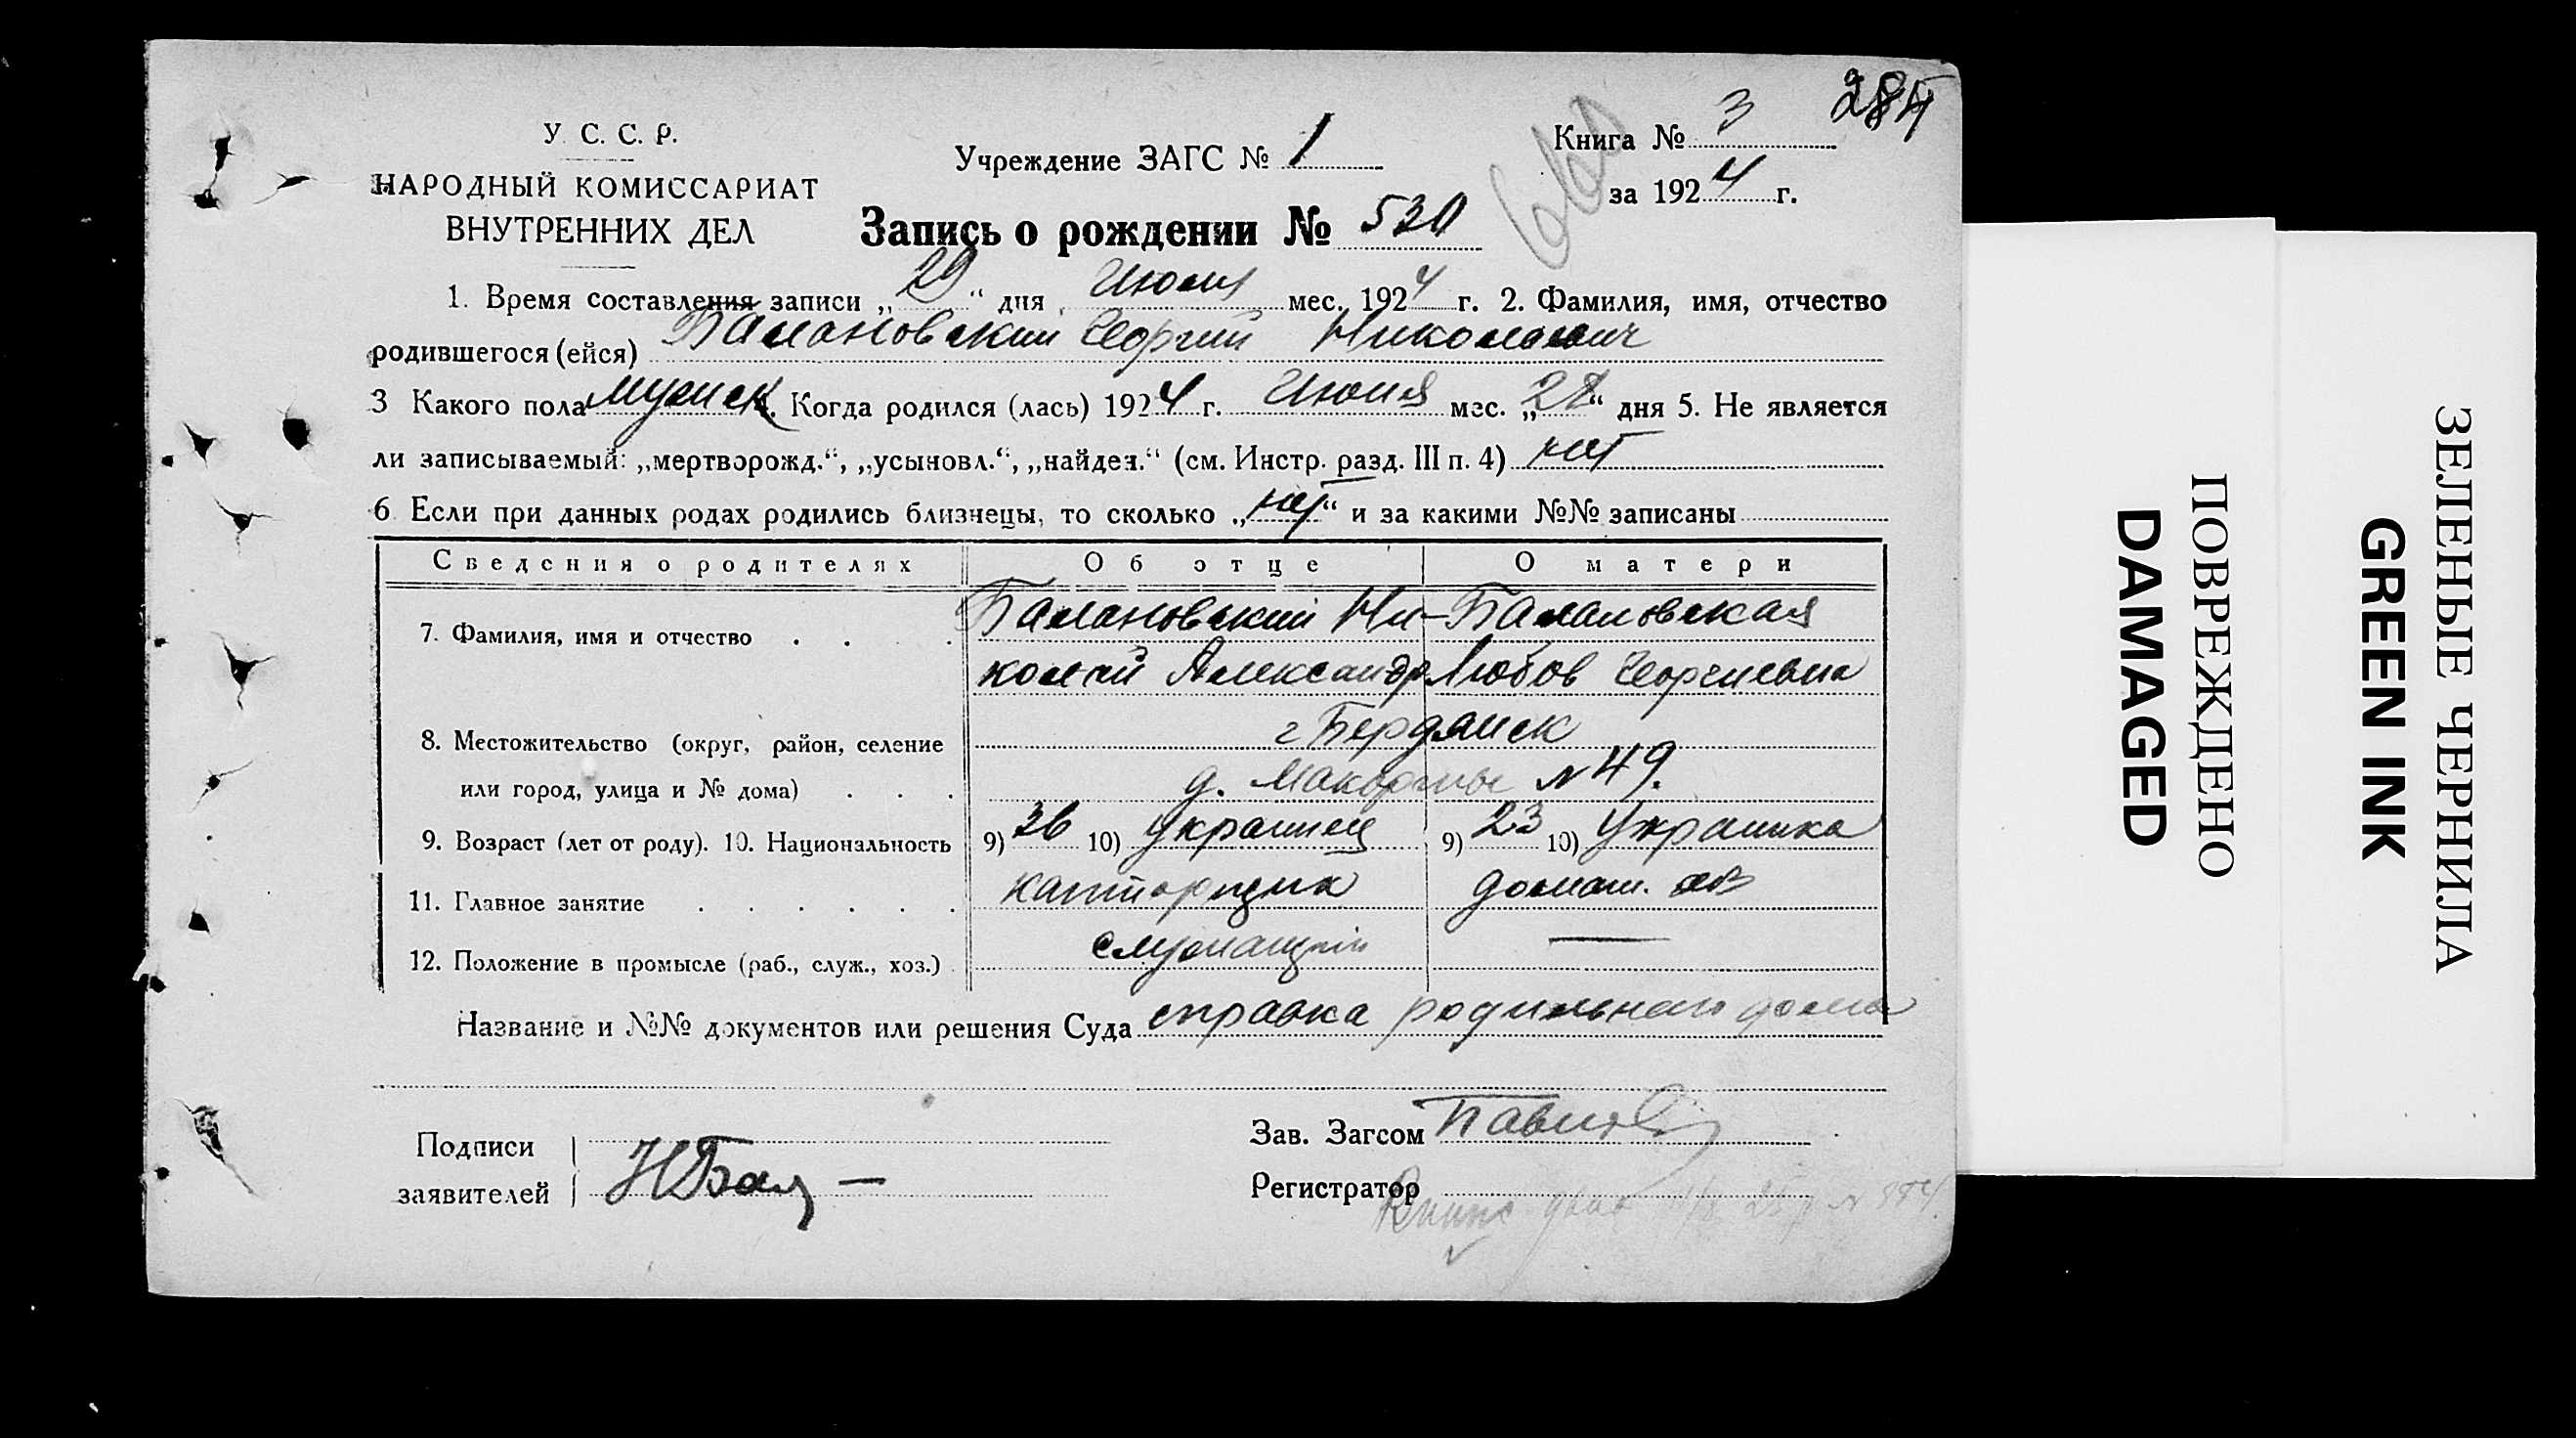 284
У. С. С. Р.
НАРОДНЫЙ КОМИССАРИАТ
ВНУТРЕННИХ ДЕЛ
Учреждение ЗАГС № 1
Книга № 3
за 1924 г.
Запись о рождении № 530
1. Время составления записи „29“ дня Июля мес. 1924 г. 2. Фамилия, имя, отчество
родившегося (ейся) Балановский Георгий Николаевич
3 Какого пола мужск. Когда родился (лась) 1924 г. Июня мес. „28“ дня 5. Не является
ли записываемый: „мертворожд.“, „усыновл.“, „найден.“ (см. Инстр. разд. III п. 4) нет
6 Если при данных родах родились близнецы, то сколько „нет“ и за какими №№ записаны
Сведения о родителях Об отце О матери
7. Фамилия, имя и отчество Балановский Ни- Балановская
колай Александр Любов Георгиевна
8. Местожительство (округ, район, селение г Бердянск
или город, улица и № дома) д. N 49.
9. Возраст (лет от роду). 10. Национальность 9) 36 10) Украинец 9) 23 10) Украинка
11. Главное занятие канторщик домаш. хоз
12. Положение в промысле (раб., служ., хоз.) служащий —
Название и №№ документов или решения Суда справка родильного дома
Подписи
заявителей НБал —
Зав. Загсом
Регистратор
ПОВРЕЖДЕНО
DAMAGED
ЗЕЛЕНЫЕ ЧЕРНИЛА
GREEN INK